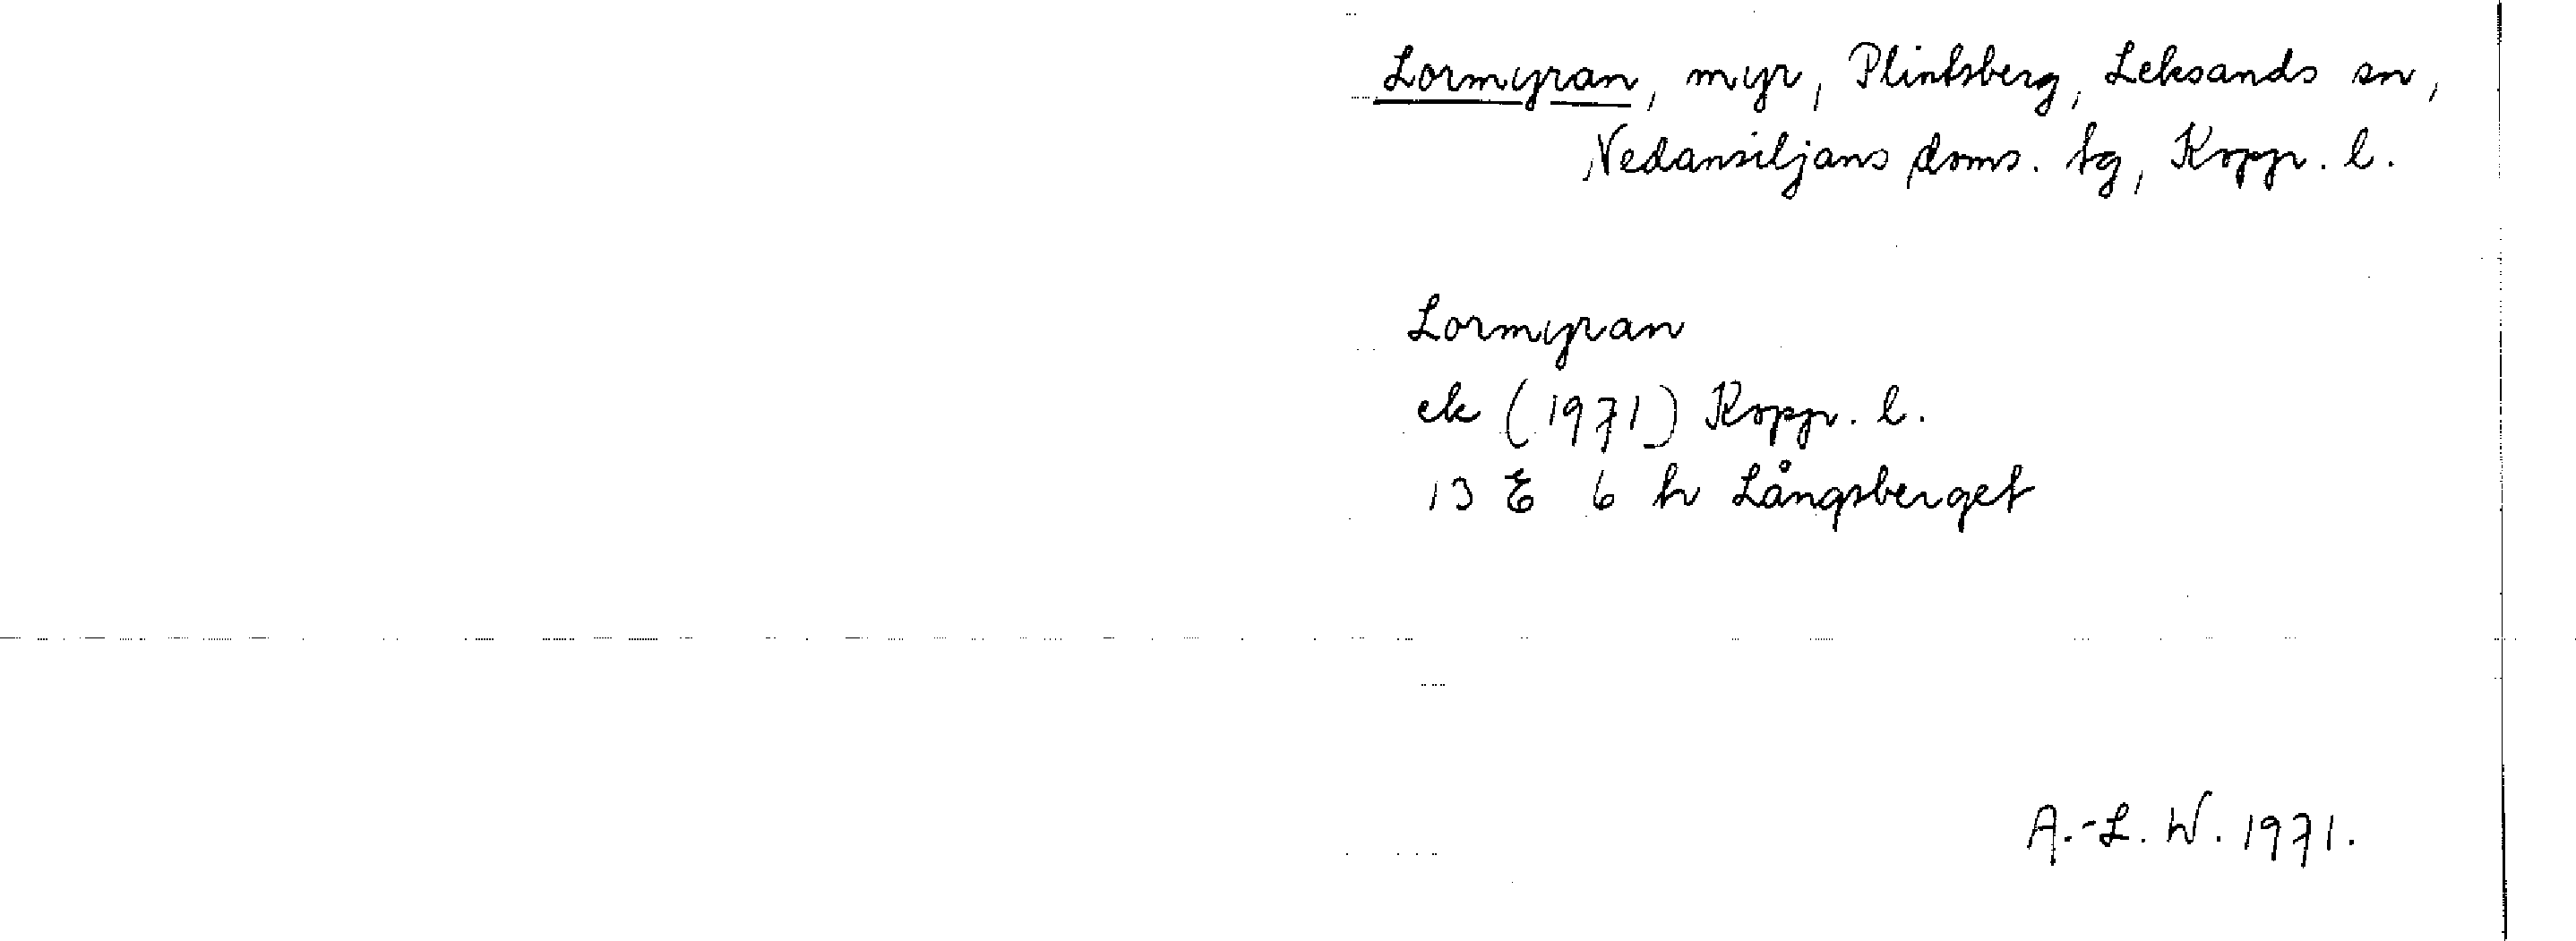 Lormyran, myr, Plintsberg, Leksands sn,
Nedansiljans doms. tg, Kopp. l.
Lormyran
ek (1971) Kopp. l.
13 E 6 h Långsberget
A.-L. W. 1971.